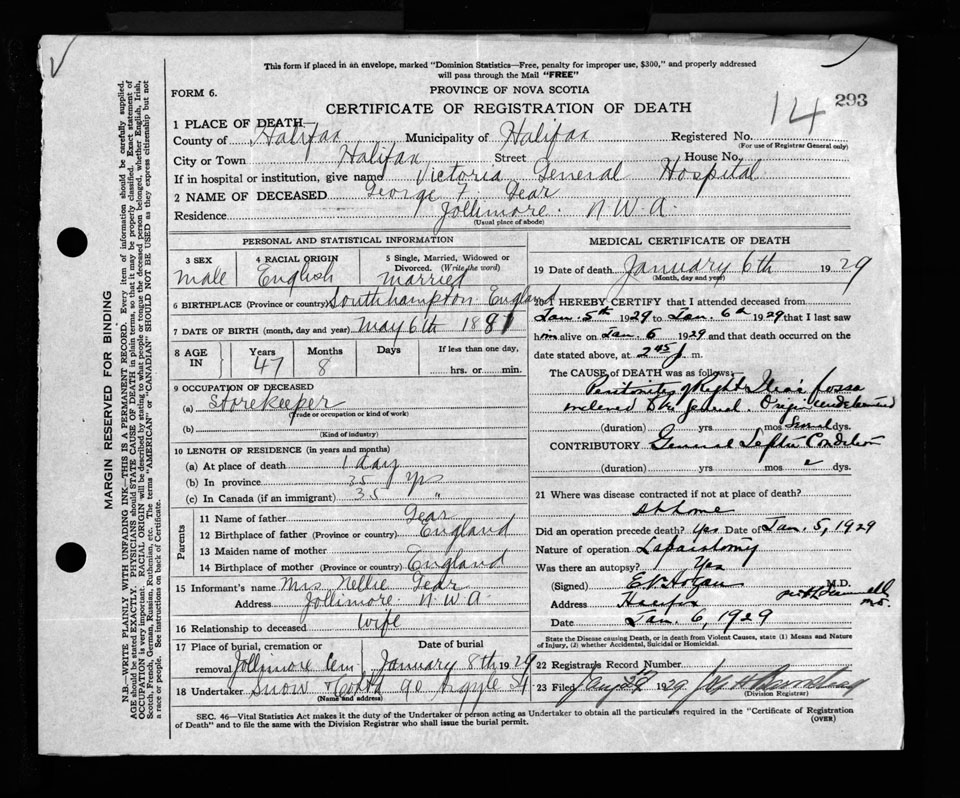 This form if placed in an envelope, marked "Dominion Statistics—Free, penalty for improper use, $300," and properly addressed
will pass through the Mail "FREE"
FORM 6.
PROVINCE OF NOVA SCOTIA
CERTIFICATE OF REGISTRATION OF DEATH
14 293
1 PLACE OF DEATH
County of Halifax Municipality of Halifax Registered No.
(For use of Registrar General only)
City or Town Halifax Street House No.
If in hospital or institution, give name Victoria General Hospital
2 NAME OF DECEASED George F. Gear
Residence Jollimore. N.W.A.
(Usual place of abode)
PERSONAL AND STATISTICAL INFORMATION
3 SEX 4 RACIAL ORIGIN 5 Single, Married, Widowed or Divorced. (Write the word)
Male English Married
6 BIRTHPLACE (Province or country) Southampton England
7 DATE OF BIRTH (month, day and year) May 6th 1881
8 AGE IN Years Months Days If less than one day,
47 8 hrs. or min.
9 OCCUPATION OF DECEASED
(a) Storekeeper
(Trade or occupation or kind of work)
(b)
(Kind of industry)
10 LENGTH OF RESIDENCE (in years and months)
(a) At place of death 1 day
(b) In province 35 yrs
(c) In Canada (if an immigrant) 35 "
Parents
11 Name of father Gear
12 Birthplace of father (Province or country) England
13 Maiden name of mother
14 Birthplace of mother (Province or country) England
15 Informant's name Mrs Nellie Gear
Address Jollimore. N.W.A.
16 Relationship to deceased wife
17 Place of burial, cremation or removal Jollimore Cem Date of burial January 8th 1929
18 Undertaker Snow & Co Ltd 90 Argyle St
(Name and address)
MEDICAL CERTIFICATE OF DEATH
19 Date of death January 6th 1929
(Month, day and year)
20 I HEREBY CERTIFY that I attended deceased from
Jan. 5th 1929 to Jan. 6th 1929 that I last saw
him alive on Jan. 6 1929 and that death occurred on the
date stated above, at 2 45 m.
The CAUSE of DEATH was as follows:
Peritonitis of Right Iliac fossa
General. Origin undetermined
(duration) yrs mos Several dys.
CONTRIBUTORY General Septic Condition
(duration) yrs mos 2 dys.
21 Where was disease contracted if not at place of death?
at home
Did an operation precede death? Yes Date of Jan. 5, 1929
Nature of operation Laparotomy
Was there an autopsy? Yes
(Signed) E V Hogan M.D.
Address Halifax
Date Jan. 6, 1929
State the Disease causing Death, or in death from Violent Causes, state (1) Means and Nature
of Injury, (2) whether Accidental, Suicidal or Homicidal.
22 Registrar's Record Number
23 Filed Jany 1929
(Division Registrar)
SEC. 46—Vital Statistics Act makes it the duty of the Undertaker or person acting as Undertaker to obtain all the particulars required in the "Certificate of Registration
of Death" and to file the same with the Division Registrar who shall issue the burial permit.
(OVER)
MARGIN RESERVED FOR BINDING
N.B.—WRITE PLAINLY WITH UNFADING INK—THIS IS A PERMANENT RECORD. Every item of information should be carefully supplied.
AGE should be stated EXACTLY. PHYSICIANS should STATE CAUSE OF DEATH in plain terms, so that it may be properly classified. Exact statement of
OCCUPATION is very important. RACIAL ORIGIN will be described by stating to what people or tongue the deceased person belonged, whether English, Irish,
Scotch, French, German, Russian, Ruthenian, etc. The terms "AMERICAN" or "CANADIAN" SHOULD NOT BE USED as they express citizenship but not
a race or people. See instructions on back of Certificate.